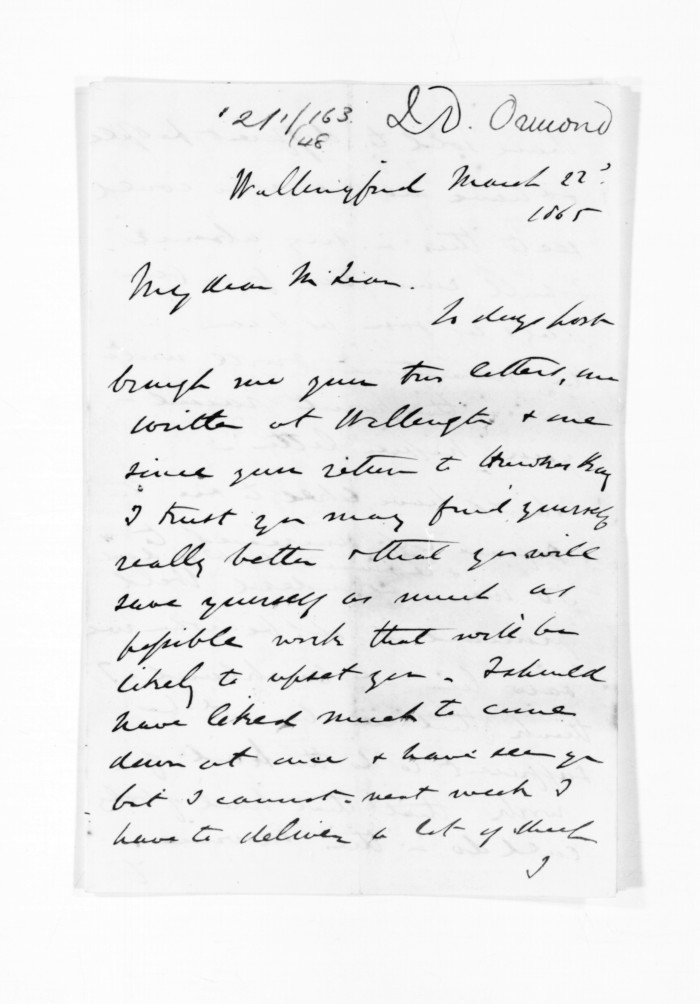 121/163. J D. Ormond
/48
Wallingford March 22d
1865
My dear McLean.
To days post
brough me your two letters, one
written at Wellington & one
since your return to Hawkes Bay
I trust you may find yourself
really better & that you will
save yourself as much as
possible work that will be
likely to upset you - I should
have liked much to come
down at once & have see you
but I cannot - next week I
have to deliver a lot of sheep
I